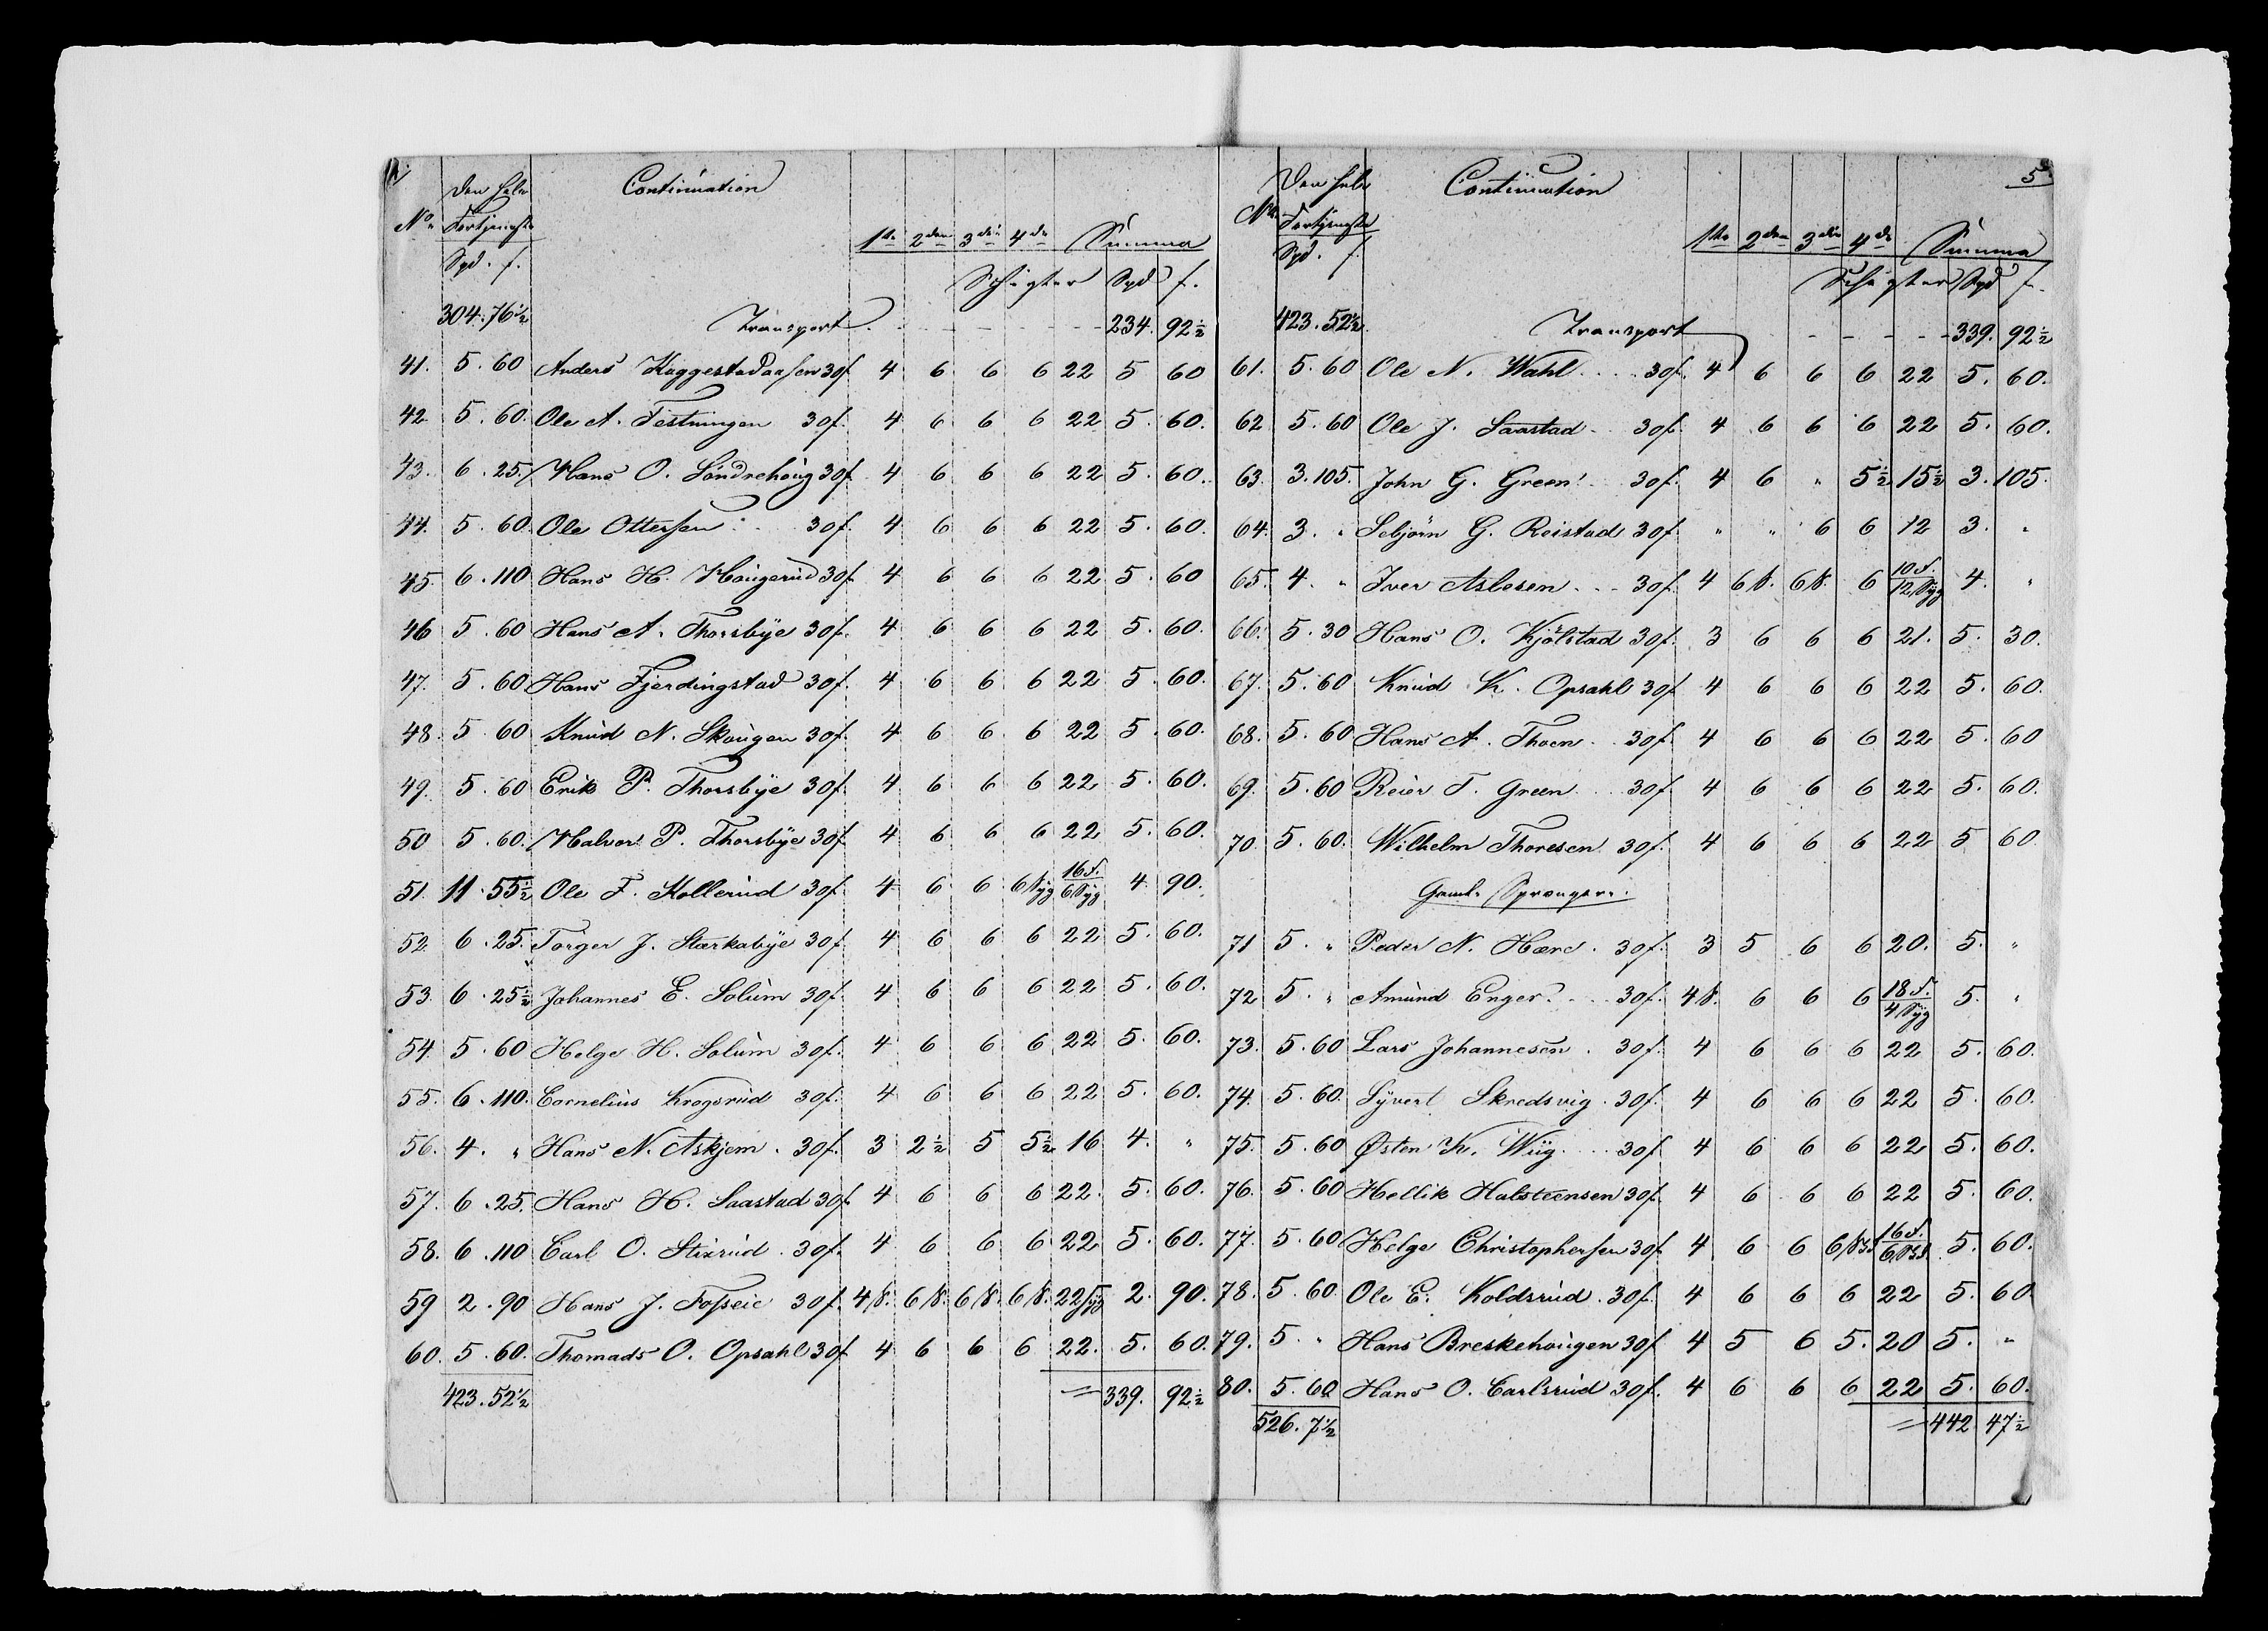 Den hele Continuation
No. Fortjeneste 1ste 2den 3die 4de Summa
Spd. f. Schigter Spd f.
304. 76½ Transport 234. 92½
41. 5. 60 Anders Kaggestadaasen 30f. 4 6 6 6 22 5 60
42. 5. 60. Ole A. Festningen 30f. 4 6 6 6 22 5. 60.
43. 6. 25. Hans O. Söndrehoug 30f. 4 6 6 6 22 5. 60.
44. 5. 60. Ole Ottersen 30f. 4 6 6 6 22 5. 60.
45. 6. 110 Hans H. Hougerud 30f. 4 6 6 6 22 5. 60
46 5. 60 Hans A. Thorsbÿe 30f. 4 6 6 6 22 5. 60.
47. 5. 60 Hans Fjerdingstad 30f. 4 6 6 6 22 5. 60.
48. 5. 60 Knud N. Skougen 30f. 4 6 6 6 22 5. 60.
49. 5. 60 Erik P. Thorsbÿe 30f. 4 6 6 6 22 5. 60.
50 5. 60. Halvor P. Thorsbÿe 30f. 4 6 6 6 22 5. 60.
51. 11. 55½ Ole F. Kollerud 30f. 4 6 6 6 Syg 16 F. 6 Syg 4. 90.
52. 6. 25. Torger J. Stærkabÿe 30f. 4 6 6 6 22 5. 60.
53. 6. 25½ Johannes E. Solum 30f. 4 6 6 6 22 5. 60.
54. 5. 60 Helge H. Solum 30f. 4 6 6 6 22 5. 60.
55. 6. 110. Cornelius Krogsrud 30f. 4 6 6 6 22 5. 60.
56. 4. " Hans N. Askjem. 30f. 3 2½ 5 5½ 16 4. "
57. 6. 25. Hans H. Saastad 30f. 4 6 6 6 22. 5. 60.
58. 6. 110 Carl O. Stixrud. 30f. 4 6 6 6 22 5. 60.
59 2. 90 Hans J. Fosseie 30f. 4 S. 6 S. 6 S. 6 S. 22 Syg 2. 90.
60. 5. 60. Thomads O. Opsahl 30f. 4 6 6 6 22. 5. 60.
423. 52½ = 339. 92½
5
Den hele Continuation
No. Fortjeneste 1ste 2den 3die 4de Summa
Spd. f. Schigter Spd f.
423. 52½ Transport 339. 92½
61. 5. 60 Ole N. Wahl 30f. 4 6 6 6 22 5. 60.
62 5. 60 Ole J. Saastad 30f. 4 6 6 6 22 5. 60.
63. 3. 105. John G. Green 30f. 4 6 " 5½ 15½ 3. 105.
64. 3. " Sebjörn G. Reistad 30f. " " 6 6 12 3. "
65. 4. " Iver Aslesen 30f. 4 6 S. 6 S. 6 10 F. 12 Syg 4. "
66. 5. 30 Hans O. Kjölstad 30f. 3 6 6 6 21. 5. 30.
67. 5. 60 Knud K. Opsahl 30f. 4 6 6 6 22 5. 60.
68. 5. 60 Hans A. Thoen 30f. 4 6 6 6 22 5. 60
69. 5. 60 Reier T. Green 30f. 4 6 6 6 22 5. 60.
70. 5. 60. Wilhelm Thoresen 30f. 4 6 6 6 22 5 60
Gamle Sprængere.
71 5. " Peder N. Hære. 30f. 3 5 6 6 20. 5. "
72 5. " Amund Enger 30f. 4 S. 6 6 6 18 F. 4 Syg 5. "
73. 5. 60 Lars Johannesen. 30f. 4 6 6 6 22 5. 60.
74. 5. 60. Syvert Skredsvig. 30f. 4 6 6 6 22 5. 60.
75. 5. 60 Østen K. Wiig 30f 4 6 6 6 22 5. 60.
76. 5. 60 Hellik Halsteensen 30f. 4 6 6 6 22 5. 60.
77. 5. 60 Helge Christophersen 30f. 4 6 6 6 16 F. 5. 60.
78. 5. 60 Ole E. Koldsrud. 30f. 4 6 6 6 22 5. 60
79. 5. " Hans Breskehougen 30f 4 5 6 5. 20 5. "
80. 5. 60 Hans O. Carlsrud 30f. 4 6 6 6 22 5. 60.
526. 7½ = 442 47½